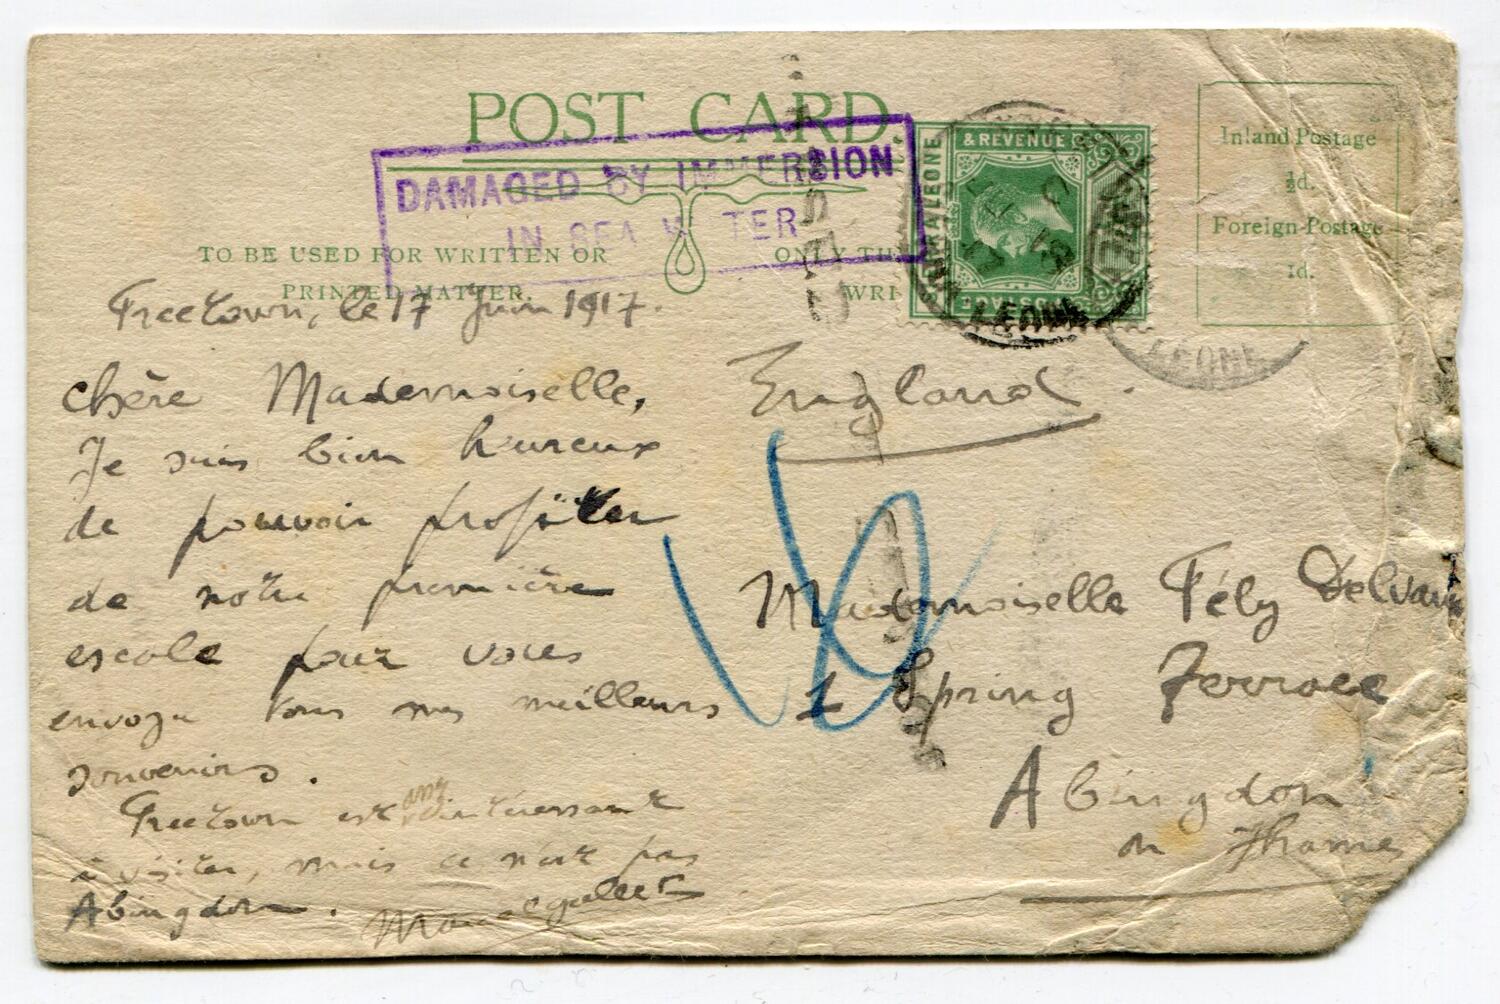 POST CARD.
DAMAGED BY IMMERSION
IN SEA W TER
& REVENUE
SIERRA LEONE
LEONE
LEONE
Inland Postage
½d.
Foreign Postage
1d.
TO BE USED FOR WRITTEN OR
PRINTED MATTER.
ONLY TH
WRI
Freetown, le 17 Juin 1917.
Chère Mademoiselle,
Je suis bien heureux
de pouvoir profiter
de notre première
escale pour vous
envoyer tous mes meilleurs
souvenirs.
Freetown est assez intéressant
à visiter, mais ce n'est pas
Abingdon.
England
Mademoiselle Fély Delvaux
1 Spring Terrace
Abingdon
on Thames